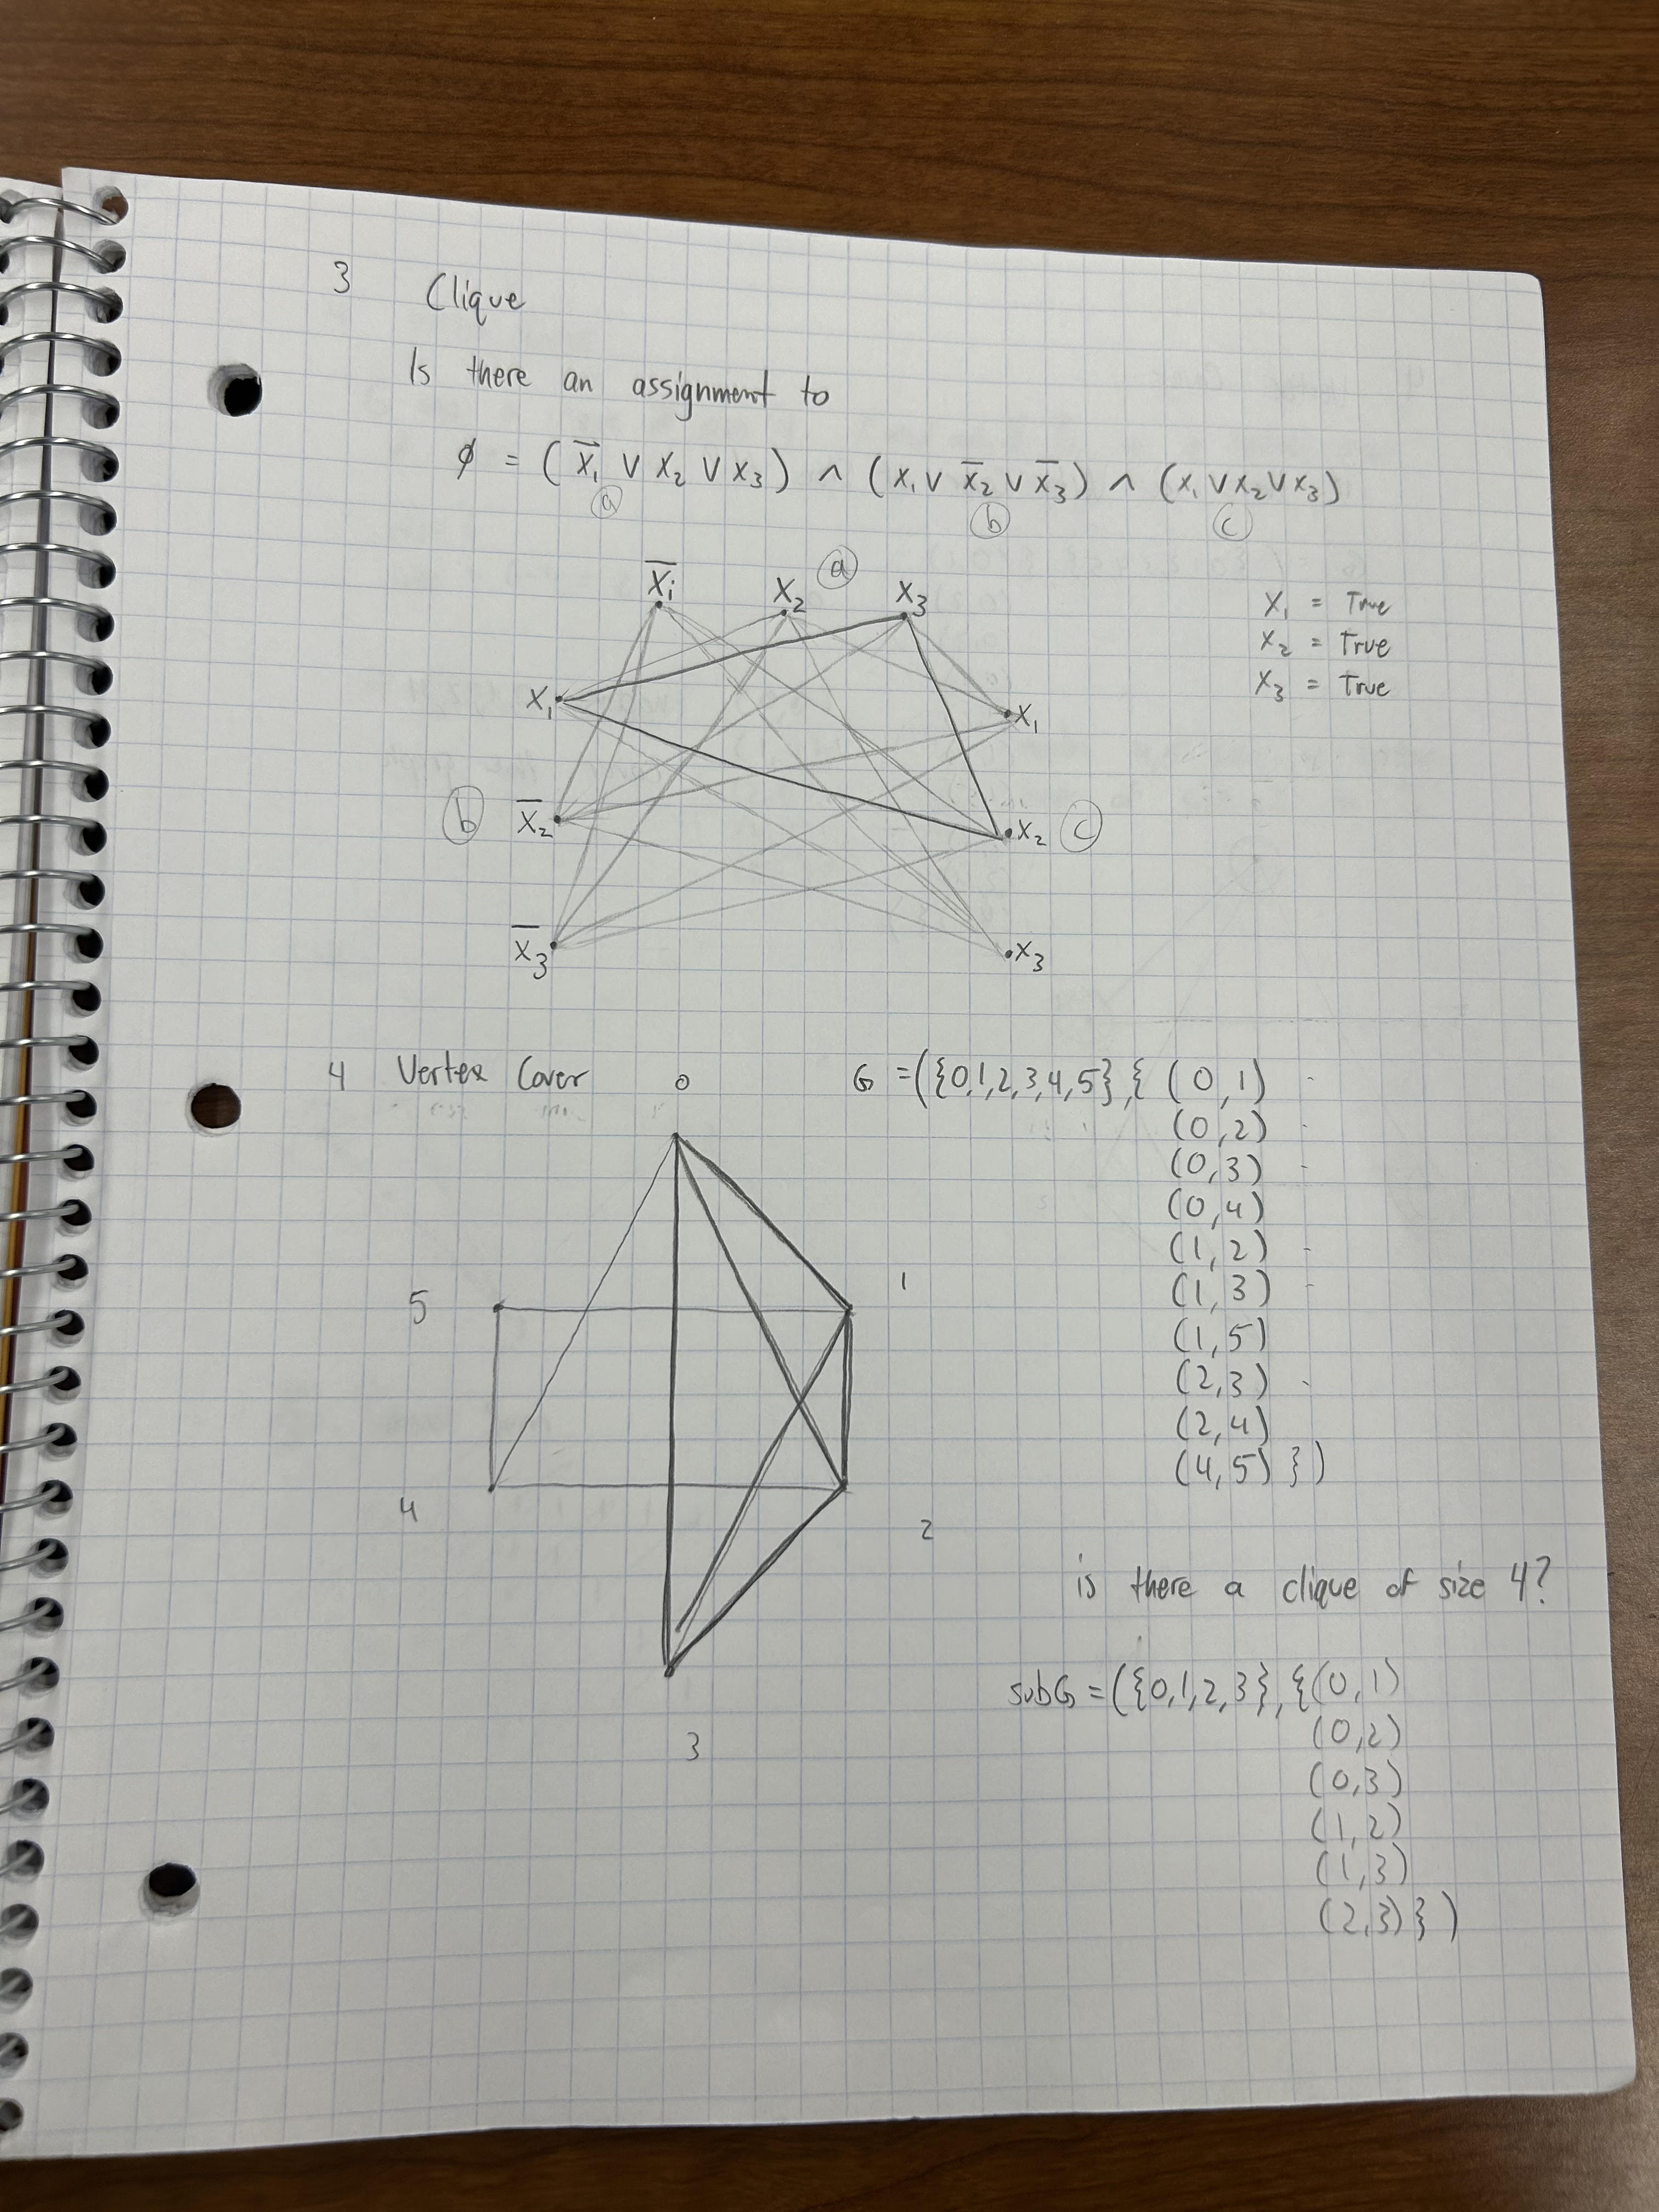 3 Clique
Is there an assignment to
ϕ = ( x̅₁ ∨ x₂ ∨ x₃ ) ∧ ( x₁ ∨ x̅₂ ∨ x̅₃ ) ∧ ( x₁ ∨ x₂ ∨ x₃ )
ⓐ ⓑ ⓒ
ⓐ
x̅₁ x₂ x₃
x₁ = True
x₂ = True
x₃ = True
x₁ x₁
ⓑ x̅₂ x₂ ⓒ
x̅₃ x₃
4 Vertex Cover
0
G = ({0,1,2,3,4,5}, { (0,1)
(0,2)
(0,3)
(0,4)
(1,2)
(1,3)
(1,5)
(2,3)
(2,4)
(4,5) })
5 1
4 2
3
is there a clique of size 4?
subG = ({0,1,2,3}, {(0,1)
(0,2)
(0,3)
(1,2)
(1,3)
(2,3) } )